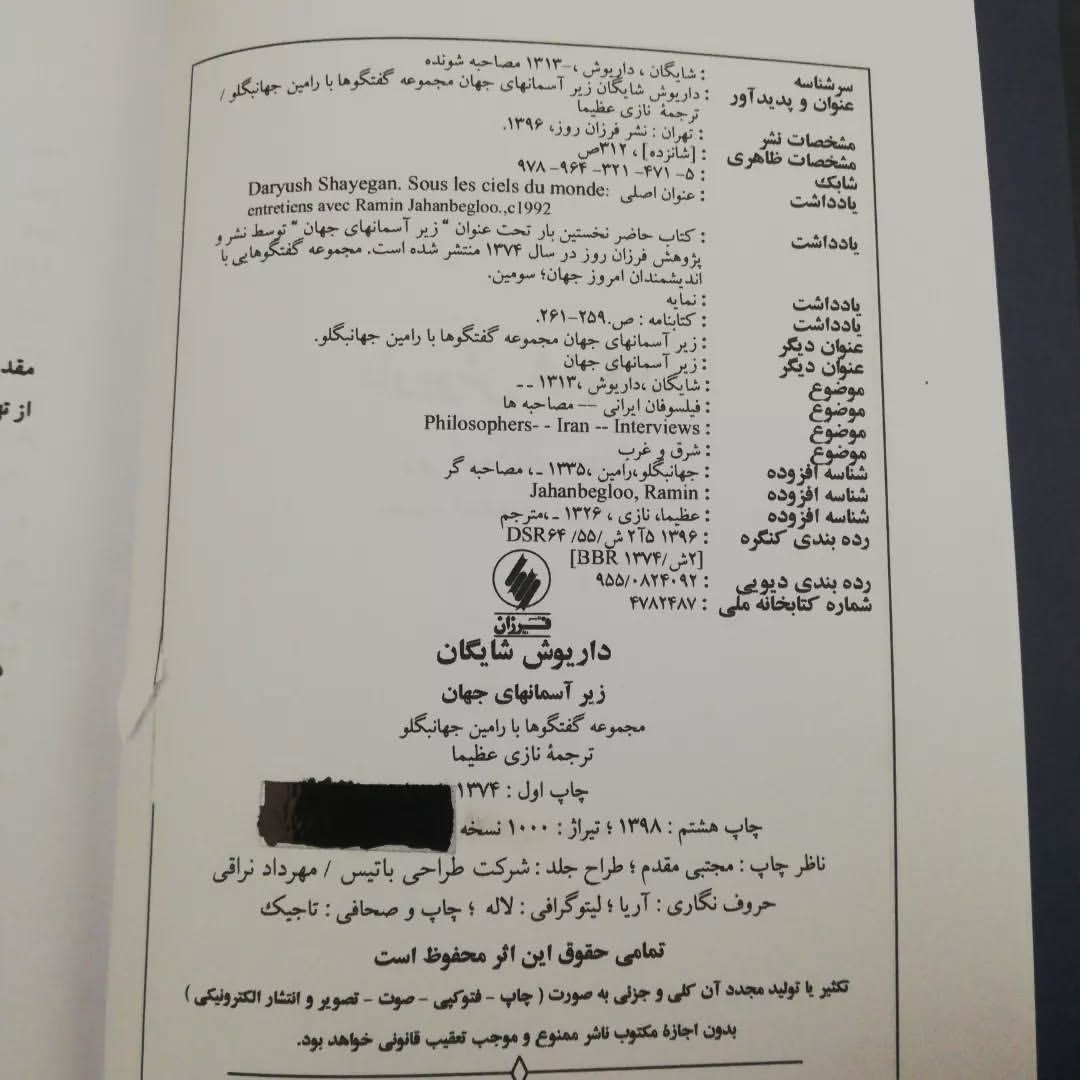 سرشناسه : شایگان ، داریوش ، ۱۳۱۳- مصاحبه شونده
عنوان و پدیدآور : داریوش شایگان زیر آسمانهای جهان مجموعه گفتگوها با رامین جهانبگلو /
ترجمهٔ نازی عظیما
مشخصات نشر : تهران : نشر فرزان روز، ۱۳۹۶.
مشخصات ظاهری : [شانزده] ، ۳۱۲ص
شابک : ۹۷۸-۹۶۴-۳۲۱-۴۷۱-۵
یادداشت : عنوان اصلی :Daryush Shayegan. Sous les ciels du monde
entretiens avec Ramin Jahanbegloo.,c1992
یادداشت : کتاب حاضر نخستین بار تحت عنوان “ زیر آسمانهای جهان “ توسط نشر و
پژوهش فرزان روز در سال ۱۳۷۴ منتشر شده است. مجموعه گفتگوهایی با
اندیشمندان امروز جهان؛ سومین.
یادداشت : نمایه
یادداشت : کتابنامه : ص.۲۵۹-۲۶۱.
عنوان دیگر : زیر آسمانهای جهان مجموعه گفتگوها با رامین جهانبگلو.
عنوان دیگر : زیر آسمانهای جهان
موضوع : شایگان ،داریوش ،۱۳۱۳ --
موضوع : فیلسوفان ایرانی -- مصاحبه ها
موضوع : Philosophers- - Iran -- Interviews
موضوع : شرق و غرب
شناسه افزوده : جهانبگلو،رامین ،۱۳۳۵ -، مصاحبه گر
شناسه افزوده : Jahanbegloo, Ramin
شناسه افزوده : عظیما، نازی ، ۱۳۲۶ -،مترجم
رده بندی کنگره : ۱۳۹۶ ۵آ۲ش/۵۵/ DSR۶۴
[BBR ۱۳۷۴/ش۲]
رده بندی دیویی : ۹۵۵/۰۸۲۴۰۹۲
شماره کتابخانه ملی : ۴۷۸۲۴۸۷
فرزان
داریوش شایگان
زیر آسمانهای جهان
مجموعه گفتگوها با رامین جهانبگلو
ترجمهٔ نازی عظیما
چاپ اول : ۱۳۷۴
چاپ هشتم : ۱۳۹۸ ؛ تیراژ : ۱۰۰۰ نسخه
ناظر چاپ : مجتبی مقدم ؛ طراح جلد : شرکت طراحی باتیس / مهرداد نراقی
حروف نگاری : آریا ؛ لیتوگرافی : لاله ؛ چاپ و صحافی : تاجیک
تمامی حقوق این اثر محفوظ است
تکثیر یا تولید مجدد آن کلی و جزئی به صورت ( چاپ - فتوکپی - صوت - تصویر و انتشار الکترونیکی )
بدون اجازهٔ مکتوب ناشر ممنوع و موجب تعقیب قانونی خواهد بود.